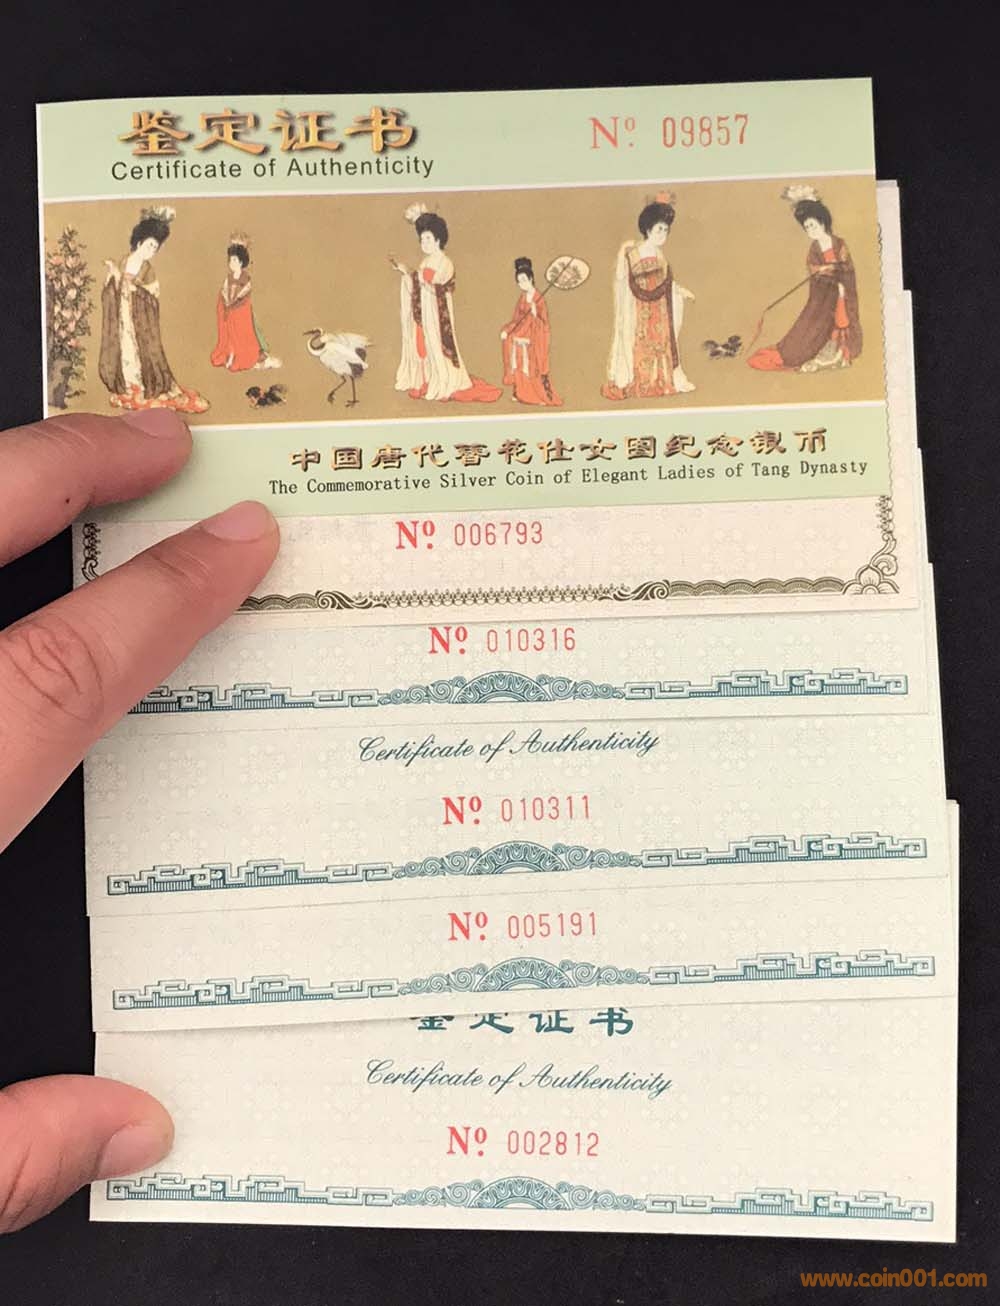 鉴定证书
Certificate of Authenticity
Nº 09857
中国唐代簪花仕女图纪念银币
The Commemorative Silver Coin of Elegant Ladies of Tang Dynasty
Nº 006793
Nº 010316
Certificate of Authenticity
Nº 010311
Nº 005191
鉴定证书
Certificate of Authenticity
Nº 002812
www.coin001.com